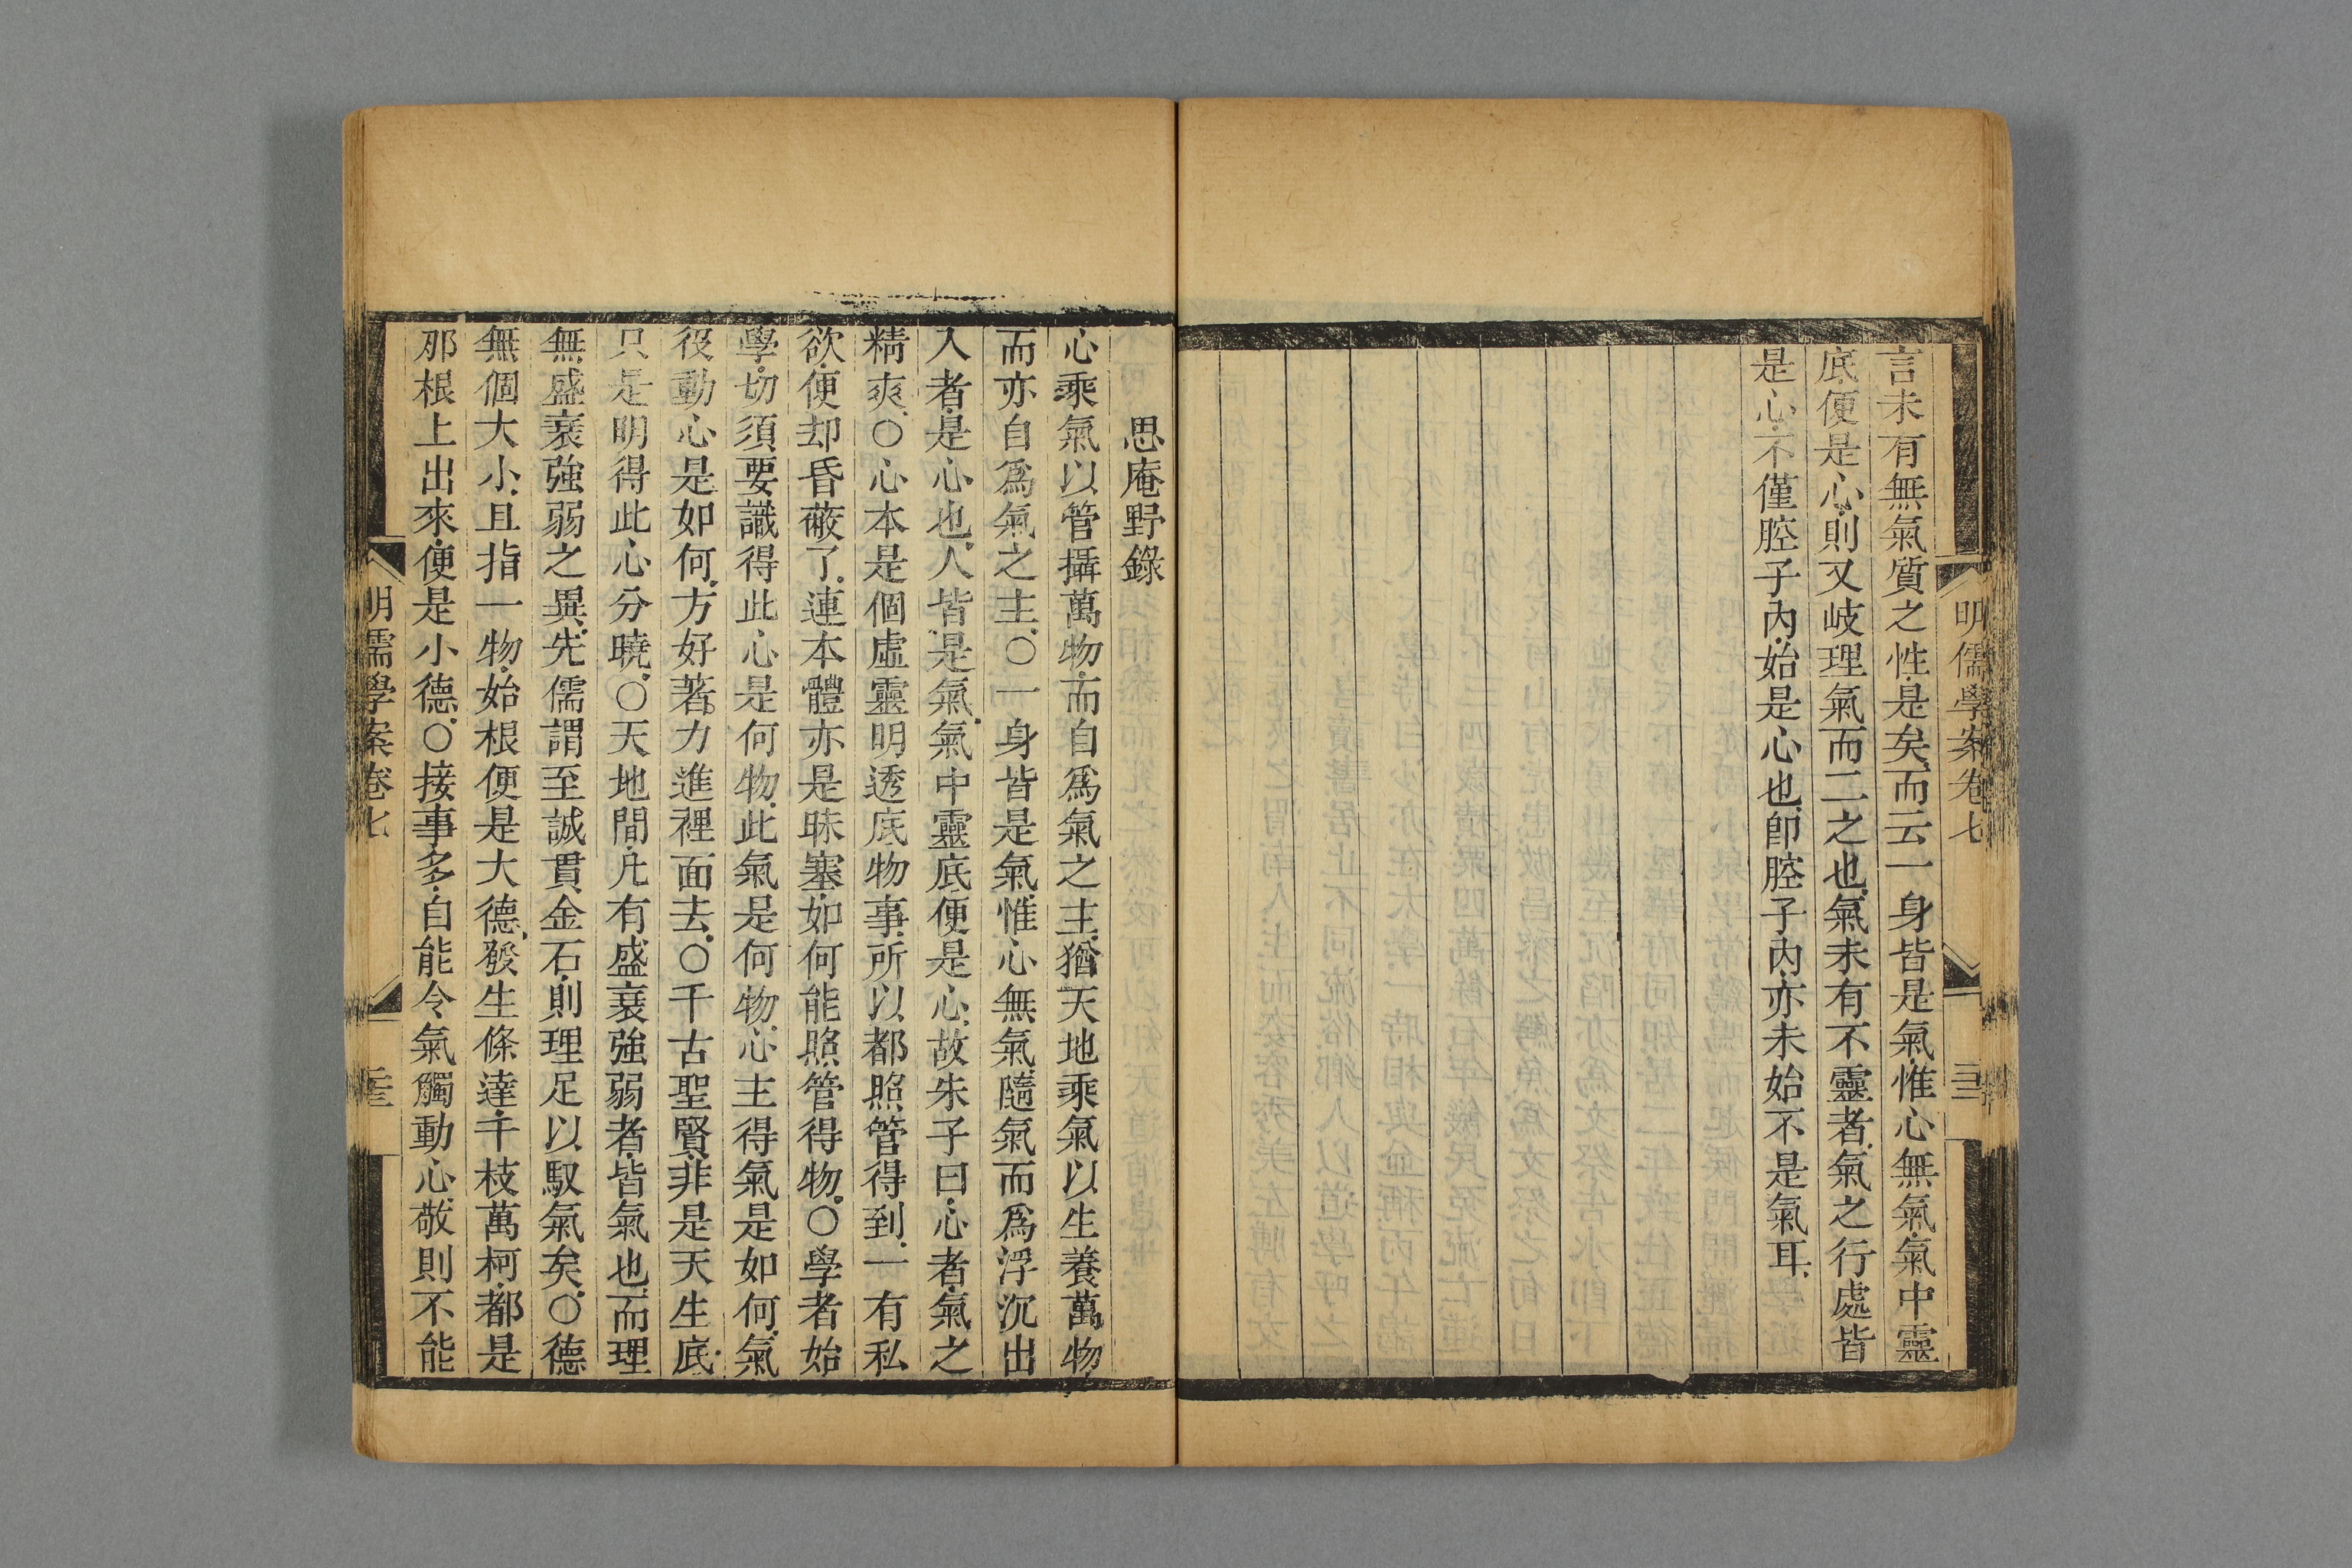 明儒學案卷七
言未有無氣質之性是矣而云一身皆是氣惟心無氣氣中靈
底便是心則又岐理氣而二之也氣未有不靈者氣之行處皆
是心不僅腔子內始是心也卽腔子內亦未始不是氣耳
思庵野錄
心乘氣以管攝萬物而自爲氣之主猶天地乘氣以生養萬物
而亦自爲氣之主○一身皆是氣惟心無氣隨氣而爲浮沉出
入者是心也人皆是氣氣中靈底便是心故朱子曰心者氣之
精爽○心本是個虛靈明透底物事所以都照管得到一有私
欲便却昏蔽了連本體亦是昧塞如何能照管得物○學者始
學切須要識得此心是何物此氣是何物心主得氣是如何氣
役動心是如何方好著力進裡面去○千古聖賢非是天生底
只是明得此心分曉○天地間凡有盛衰強弱者皆氣也而理
無盛衰強弱之異先儒謂至誠貫金石則理足以馭氣矣○德
無個大小且指一物始根便是大德發生條達千枝萬柯都是
那根上出來便是小德○接事多自能令氣觸動心敬則不能
明儒學案卷七